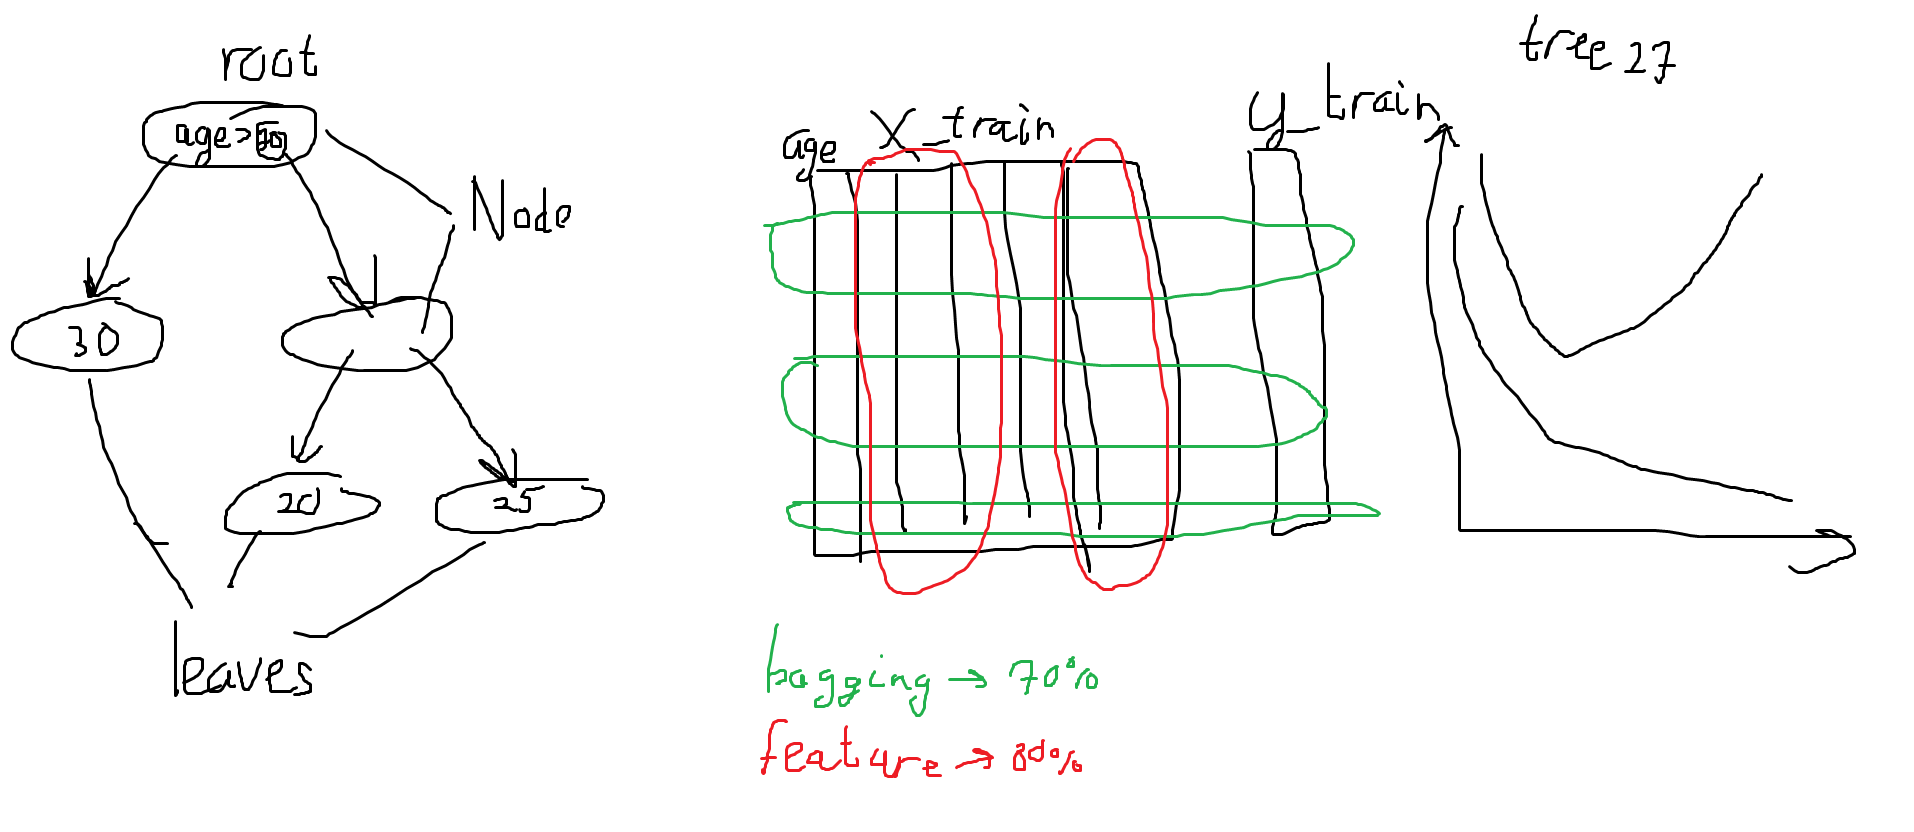 root
age>
Node
30
20
25
leaves
age
X_train
y_train
bagging → 70%
feature → 80%
tree 27